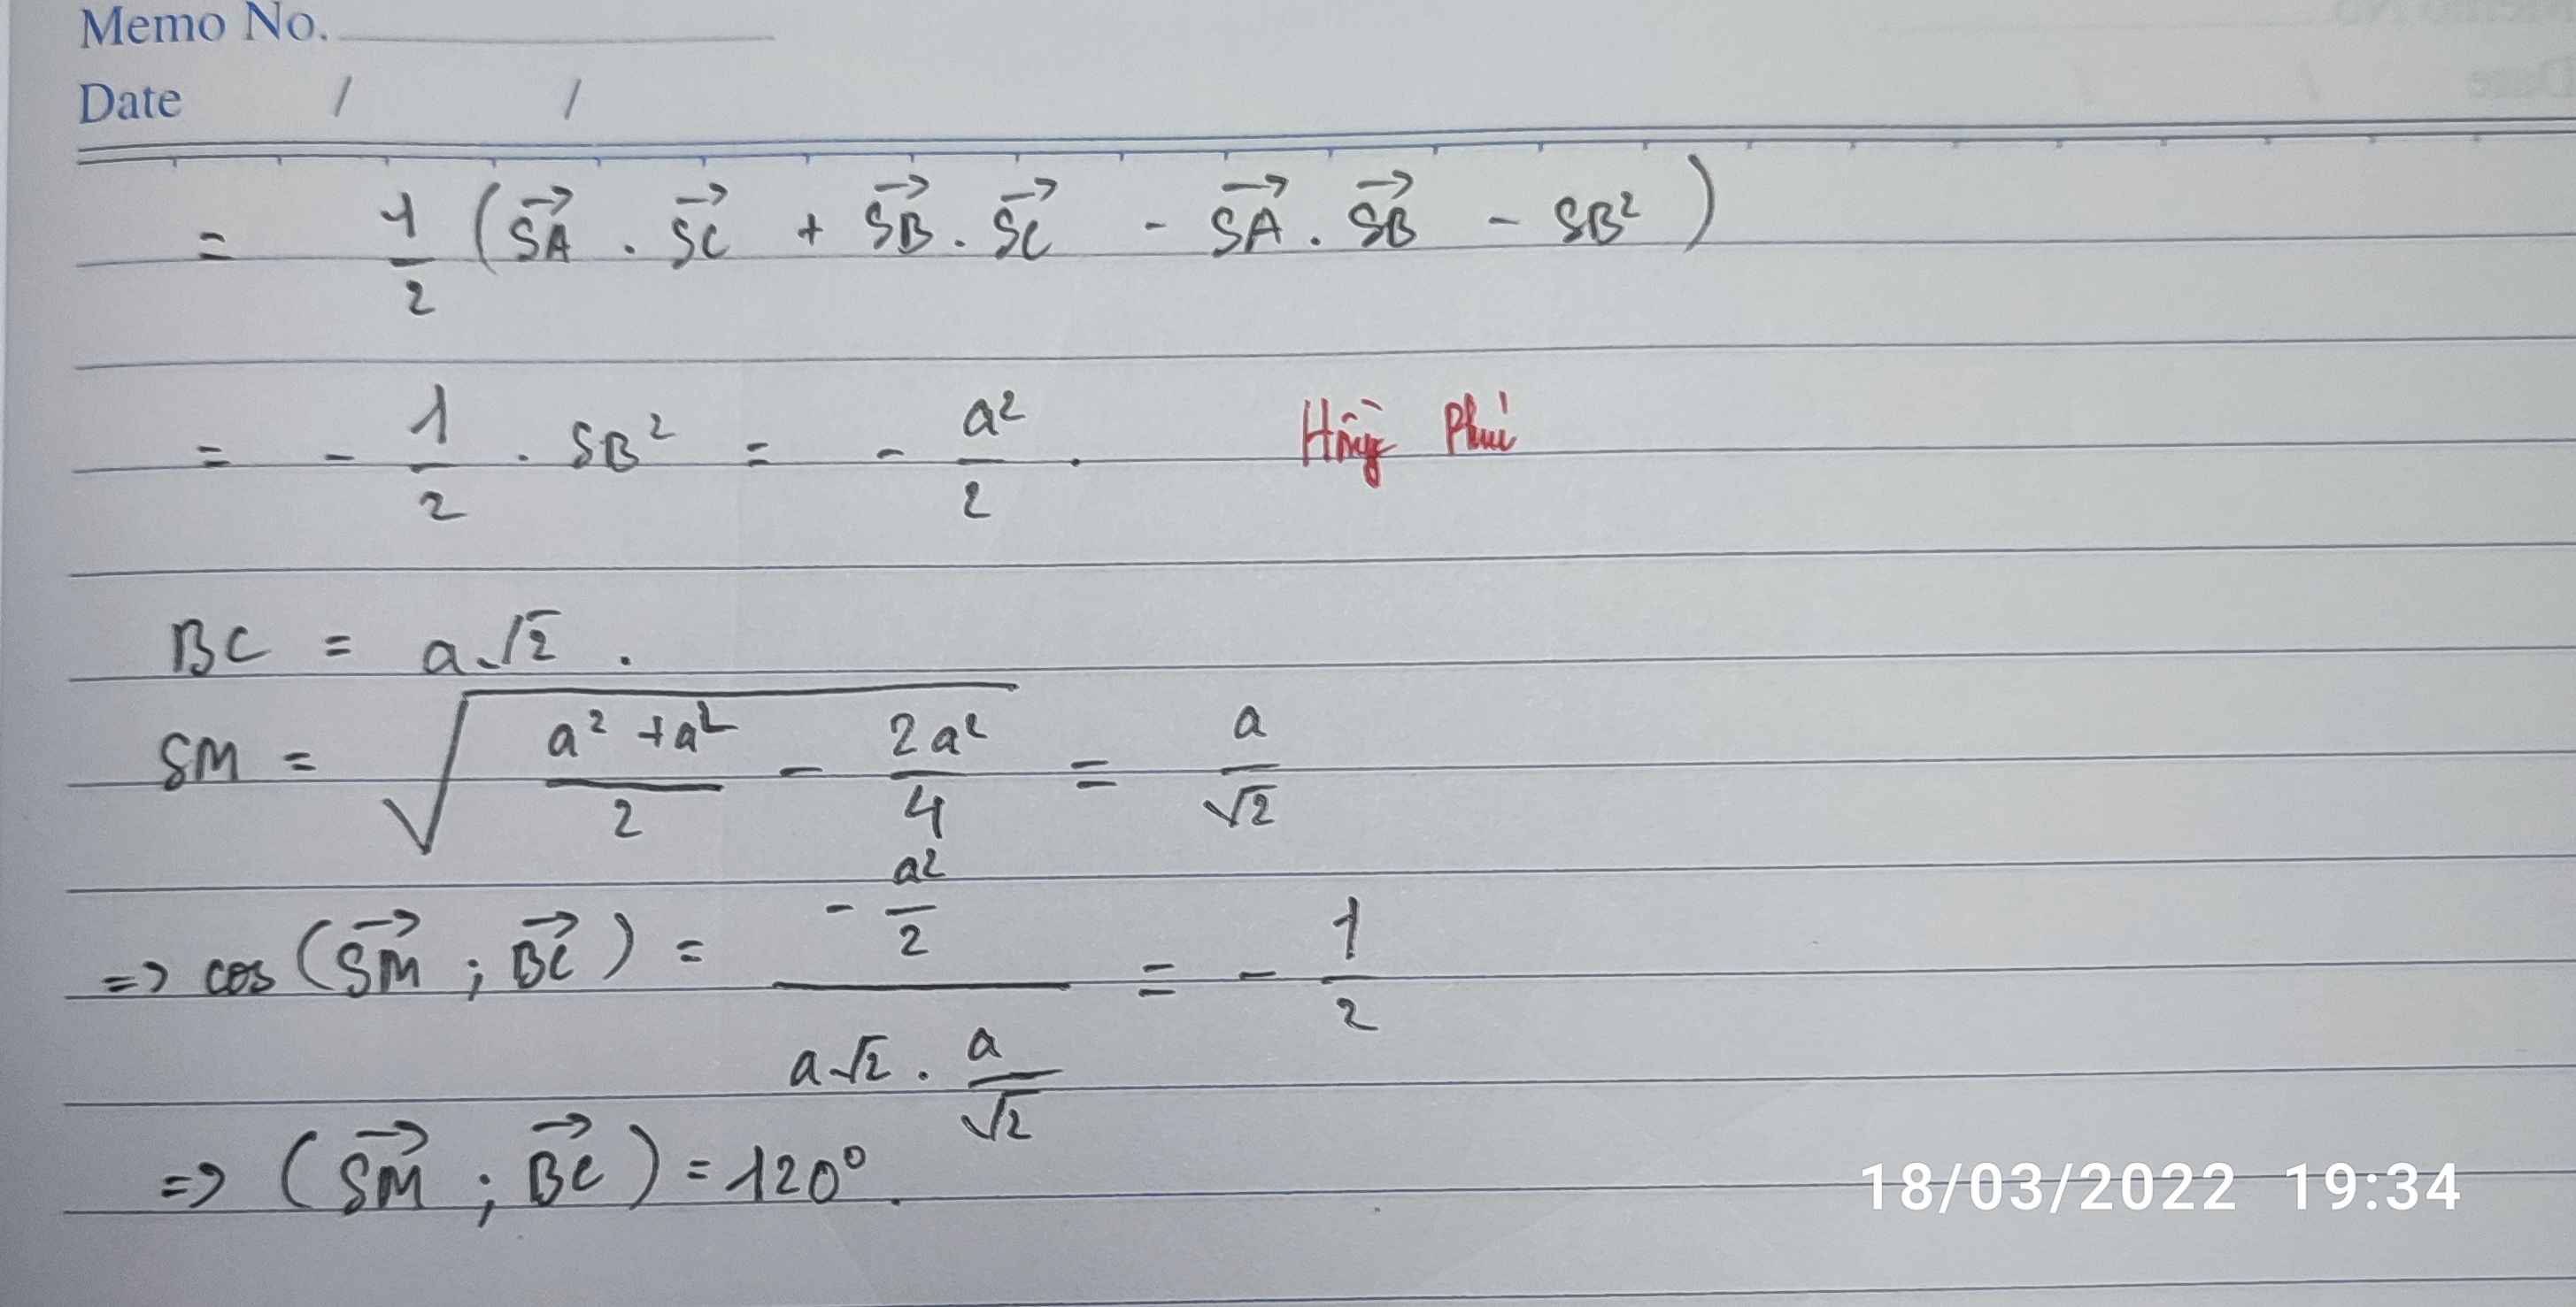 Memo No.
Date / /
= 1/2 (\vec{SA} . \vec{SC} + \vec{SB} . \vec{SC} - \vec{SA} . \vec{SB} - SB²)
= - 1/2 . SB² = - a²/2 . Hồng Phúc
BC = a√2 .
SM = √((a² + a²)/2 - 2a²/4) = a/√2
=> cos (\vec{SM} ; \vec{BC}) = (- a²/2)/(a√2 . a/√2) = - 1/2
=> (\vec{SM} ; \vec{BC}) = 120⁰.
18/03/2022 19:34